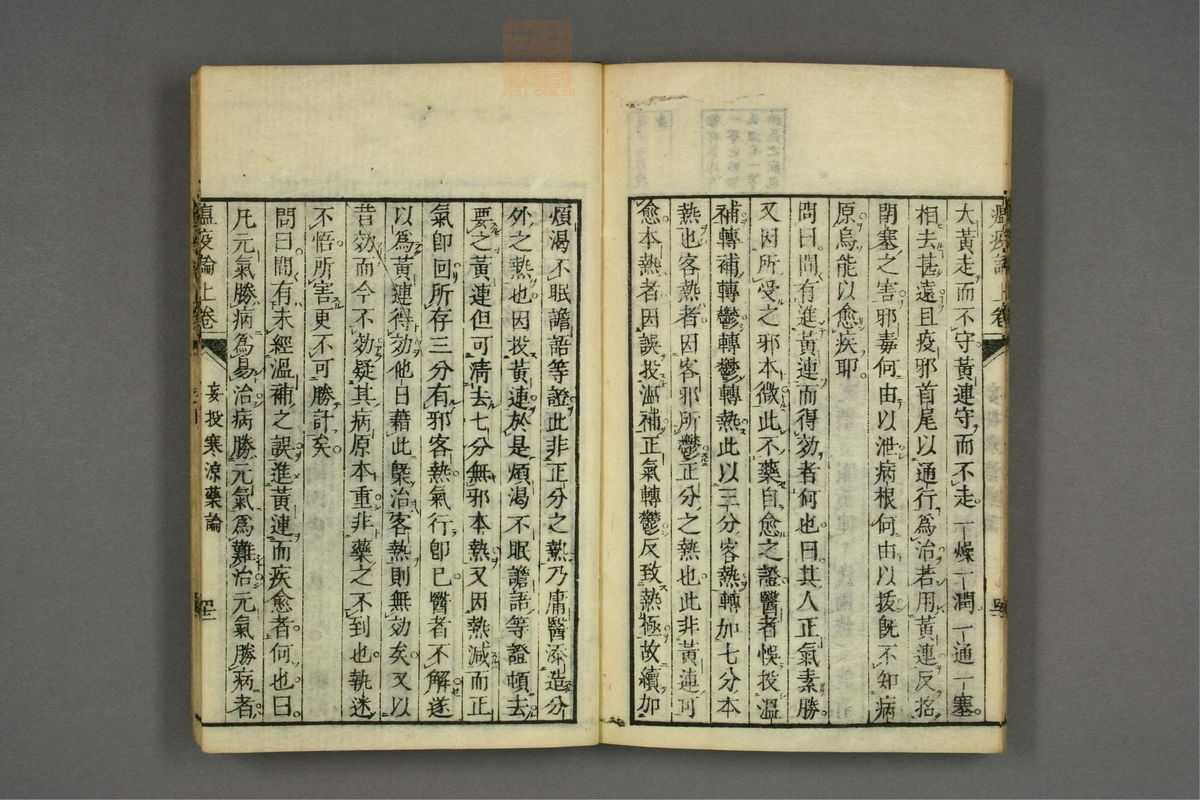 大黃走而不守黃連守而不走一燥一潤一通一塞
相去甚遠且疫邪首尾以通行爲治若用黃連反招
閉塞之害邪毒何由以泄病根何由以拔既不知病
原烏能以愈疾耶
問曰間有進黃連而得効者何也曰其人正氣素勝
又因所受之邪本微此不藥自愈之證醫者悞投溫
補轉補轉鬱轉鬱轉熱此以三分客熱轉加七分本
熱也客熱者因客邪所鬱正分之熱也此非黃連可
愈本熱者因誤投溫補正氣轉鬱反致熱極故續加
煩渴不眠譫語等證此非正分之熱乃庸醫添造分
外之熱也因投黃連於是煩渴不眠譫語等證頓去
要之黃連但可清去七分無邪本熱又因熱減而正
氣即回所存三分有邪客熱氣行即已醫者不解遂
以爲黃連得効他日藉此槩治客熱則無効矣又以
昔効而今不効疑其病原本重非藥之不到也執迷
不悟所害更不可勝計矣
問曰間有未經溫補之誤進黃連而疾愈者何也曰
凡元氣勝病爲易治病勝元氣爲難治元氣勝病者
瘟疫論上卷
妄投寒涼藥論